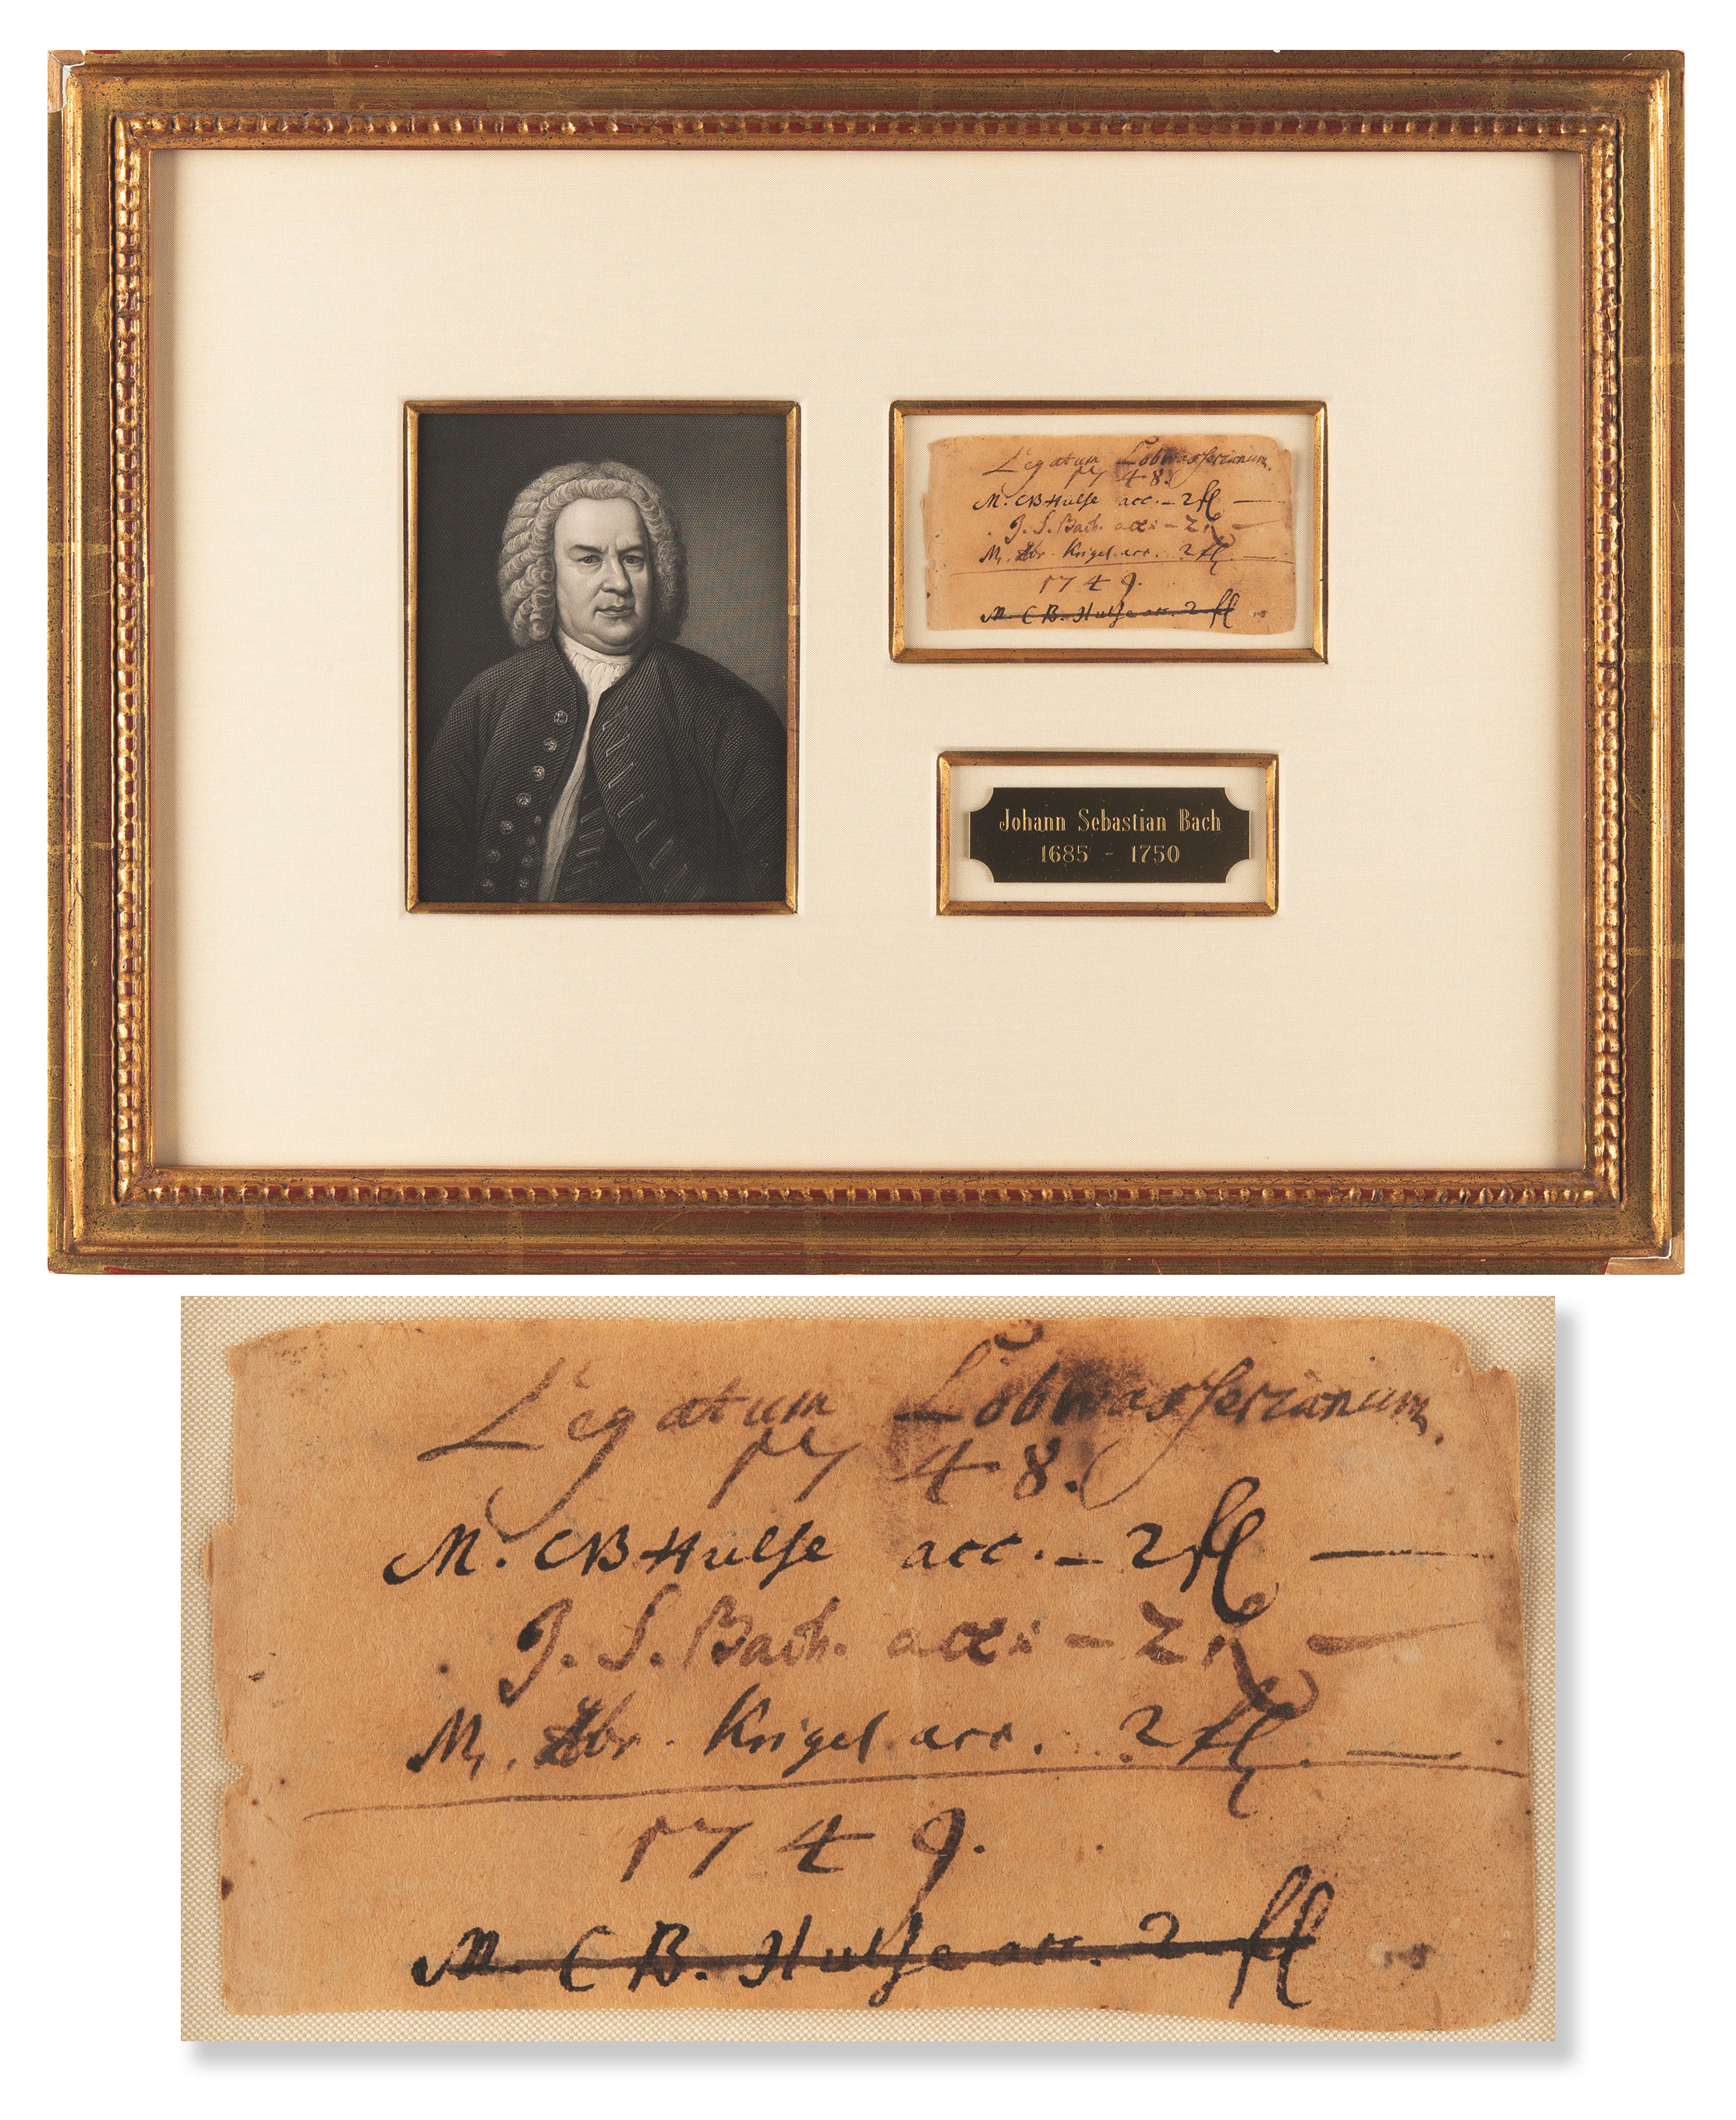 Legatum Lobwasserianum.
1748.
M. CB Hulse acc. – 2 fl —
J. S. Bach. acc: – 2 fl —
M. Abr. Krigel acc. 2 fl. —
1749.
M. C B. Hulse acc. 2 fl
Johann Sebastian Bach
1685 - 1750
Legatum Lobwasserianum.
1748.
M. CB Hulse acc. – 2 fl —
J. S. Bach. acc: – 2 fl —
M. Abr. Krigel acc. 2 fl. —
1749.
M. C B. Hulse acc. 2 fl